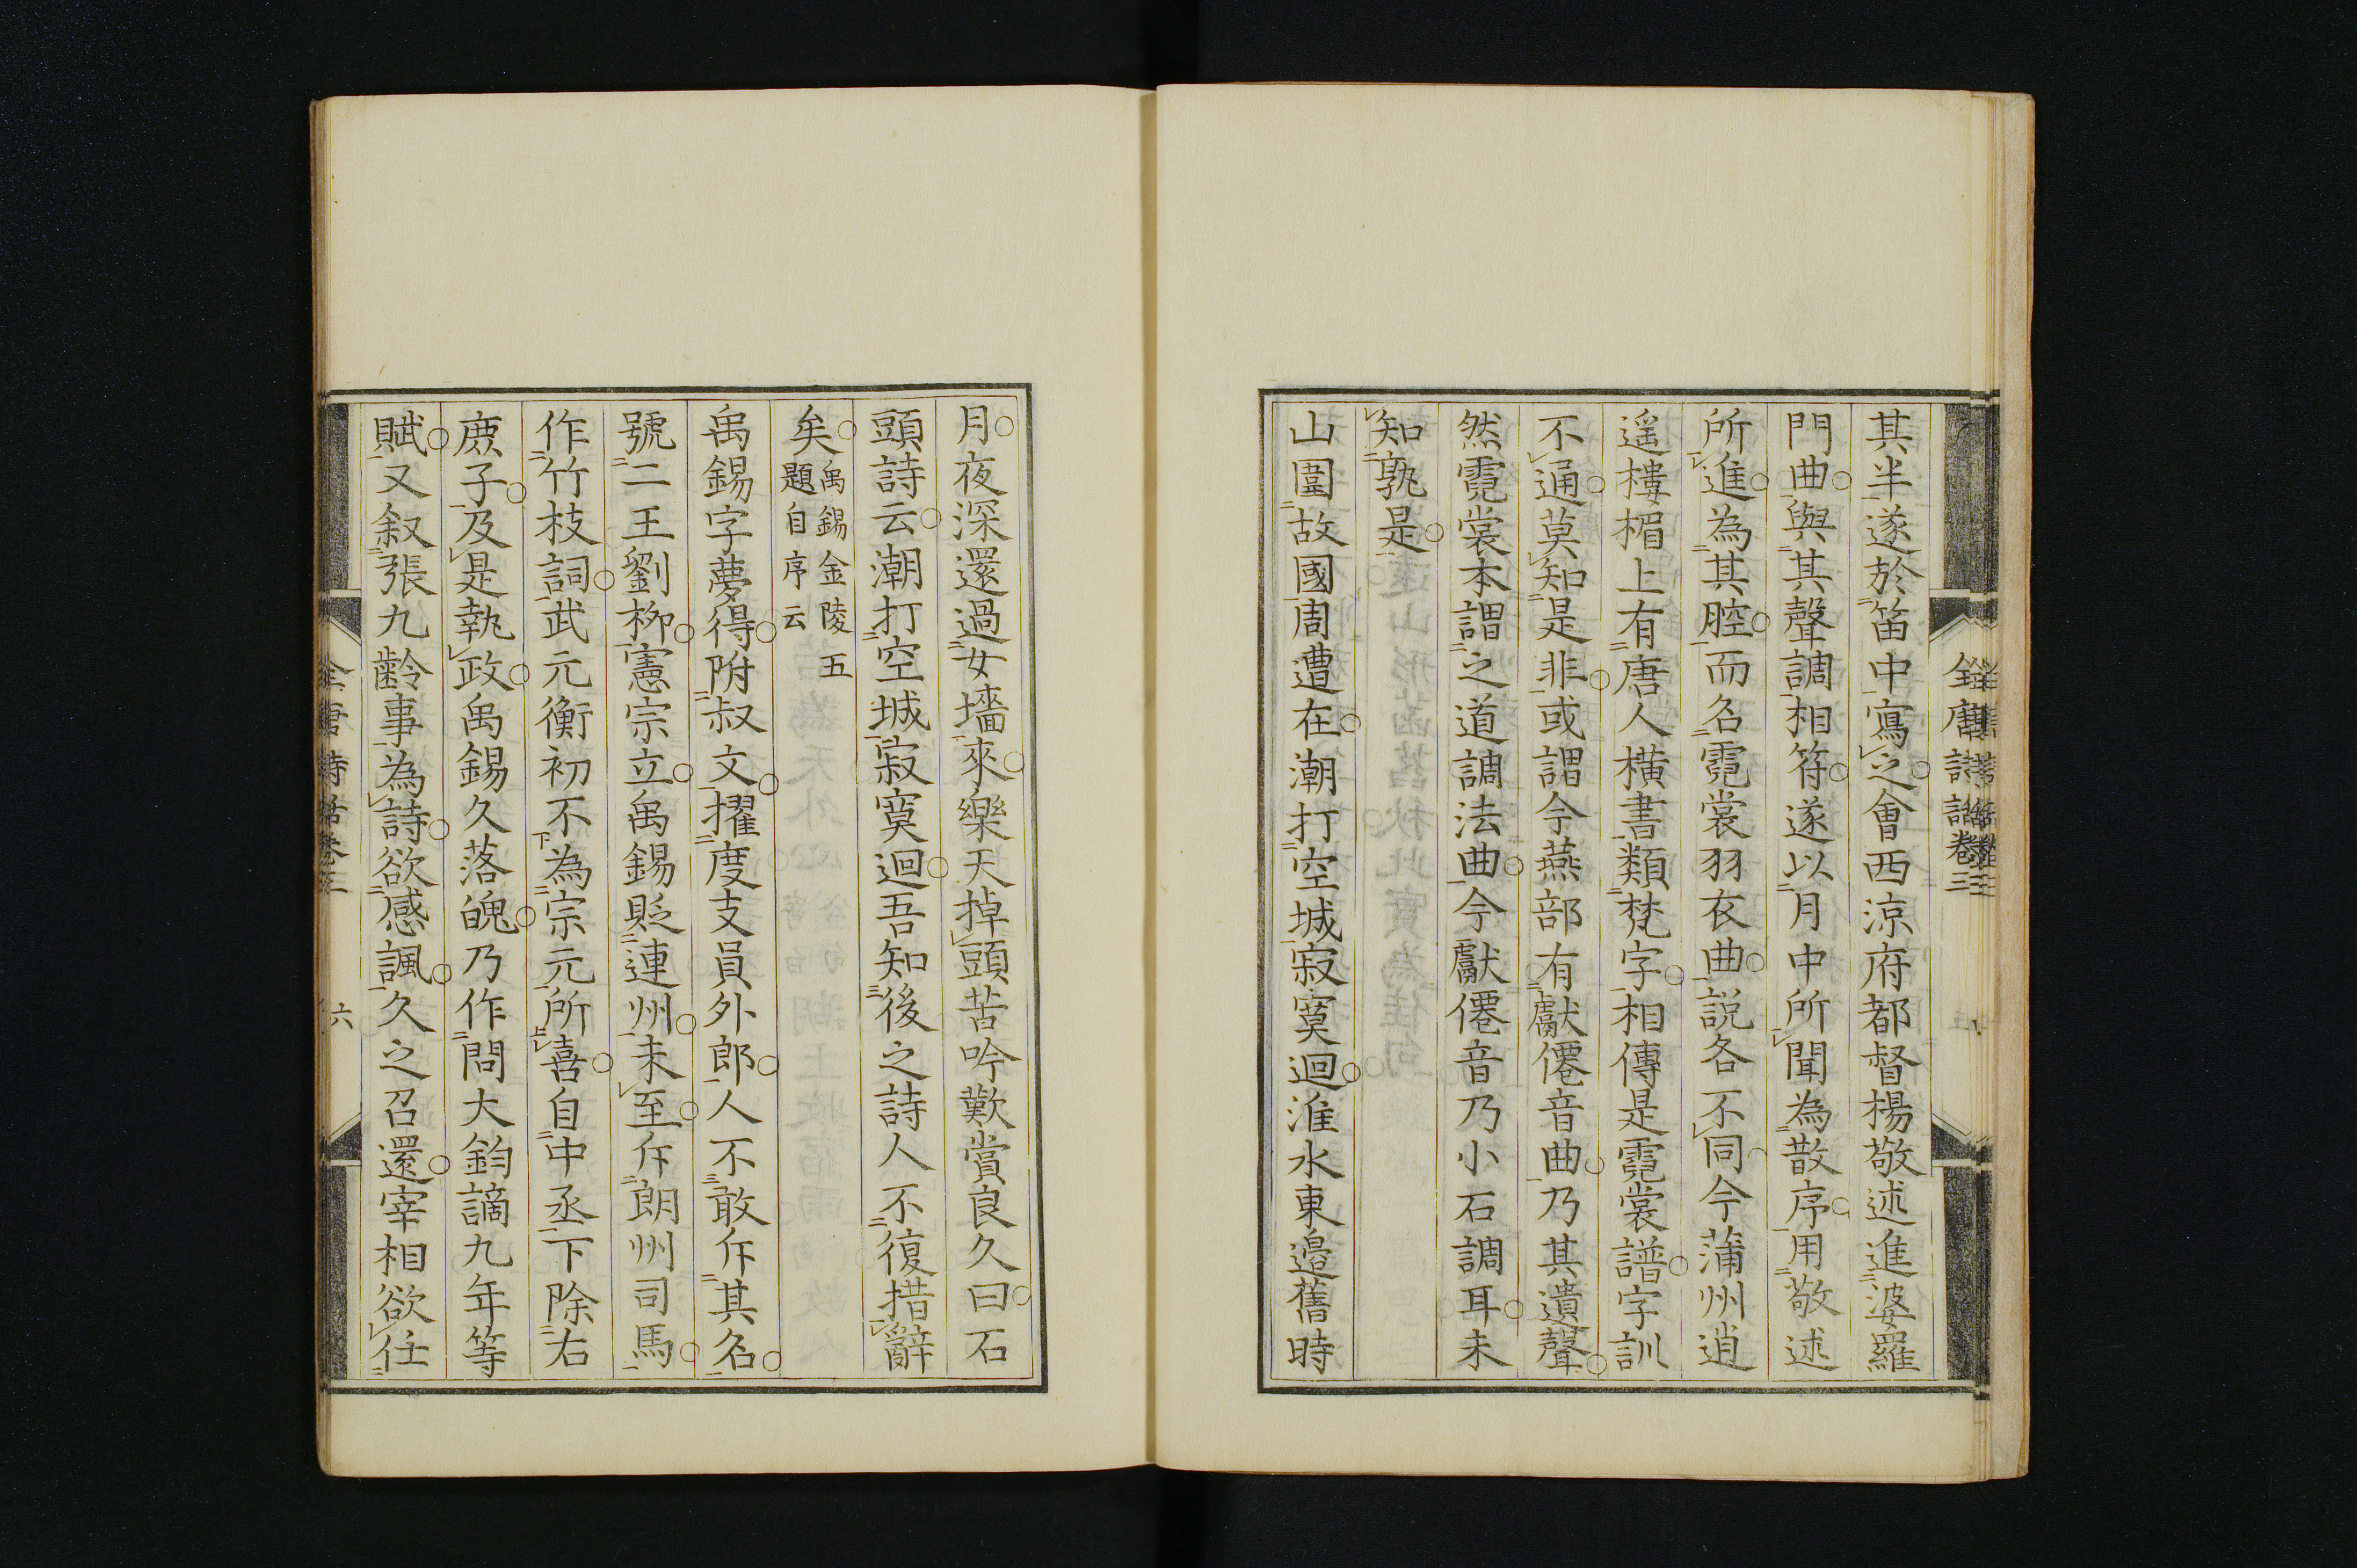 其半遂於笛中寫之會西涼府都督楊敬述進婆羅
門曲與其聲調相符遂以月中所聞為散序用敬述
所進為其腔而名霓裳羽衣曲説各不同今蒲州逍
遥樓楣上有唐人橫書類梵字相傳是霓裳譜字訓
不通莫知是非或謂今燕部有獻僊音曲乃其遺聲
然霓裳本謂之道調法曲今獻僊音乃小石調耳未
知孰是
山圍故國周遭在潮打空城寂寞迴淮水東邉舊時
月夜深還過女墻來樂天掉頭苦吟歎賞良久曰石
頭詩云潮打空城寂寞迴吾知後之詩人不復措辭
矣禹錫金陵五
題自序云
禹錫字夢得附叔文擢度支員外郎人不敢斥其名
號二王劉桺憲宗立禹錫貶連州未至斥朗州司馬
作竹枝詞武元衡初不為宗元所喜自中丞下除右
庶子及是執政禹錫久落魄乃作問大鈞謫九年等
賦又叙張九齡事為詩欲感諷久之召還宰相欲任
全唐詩話卷三
六